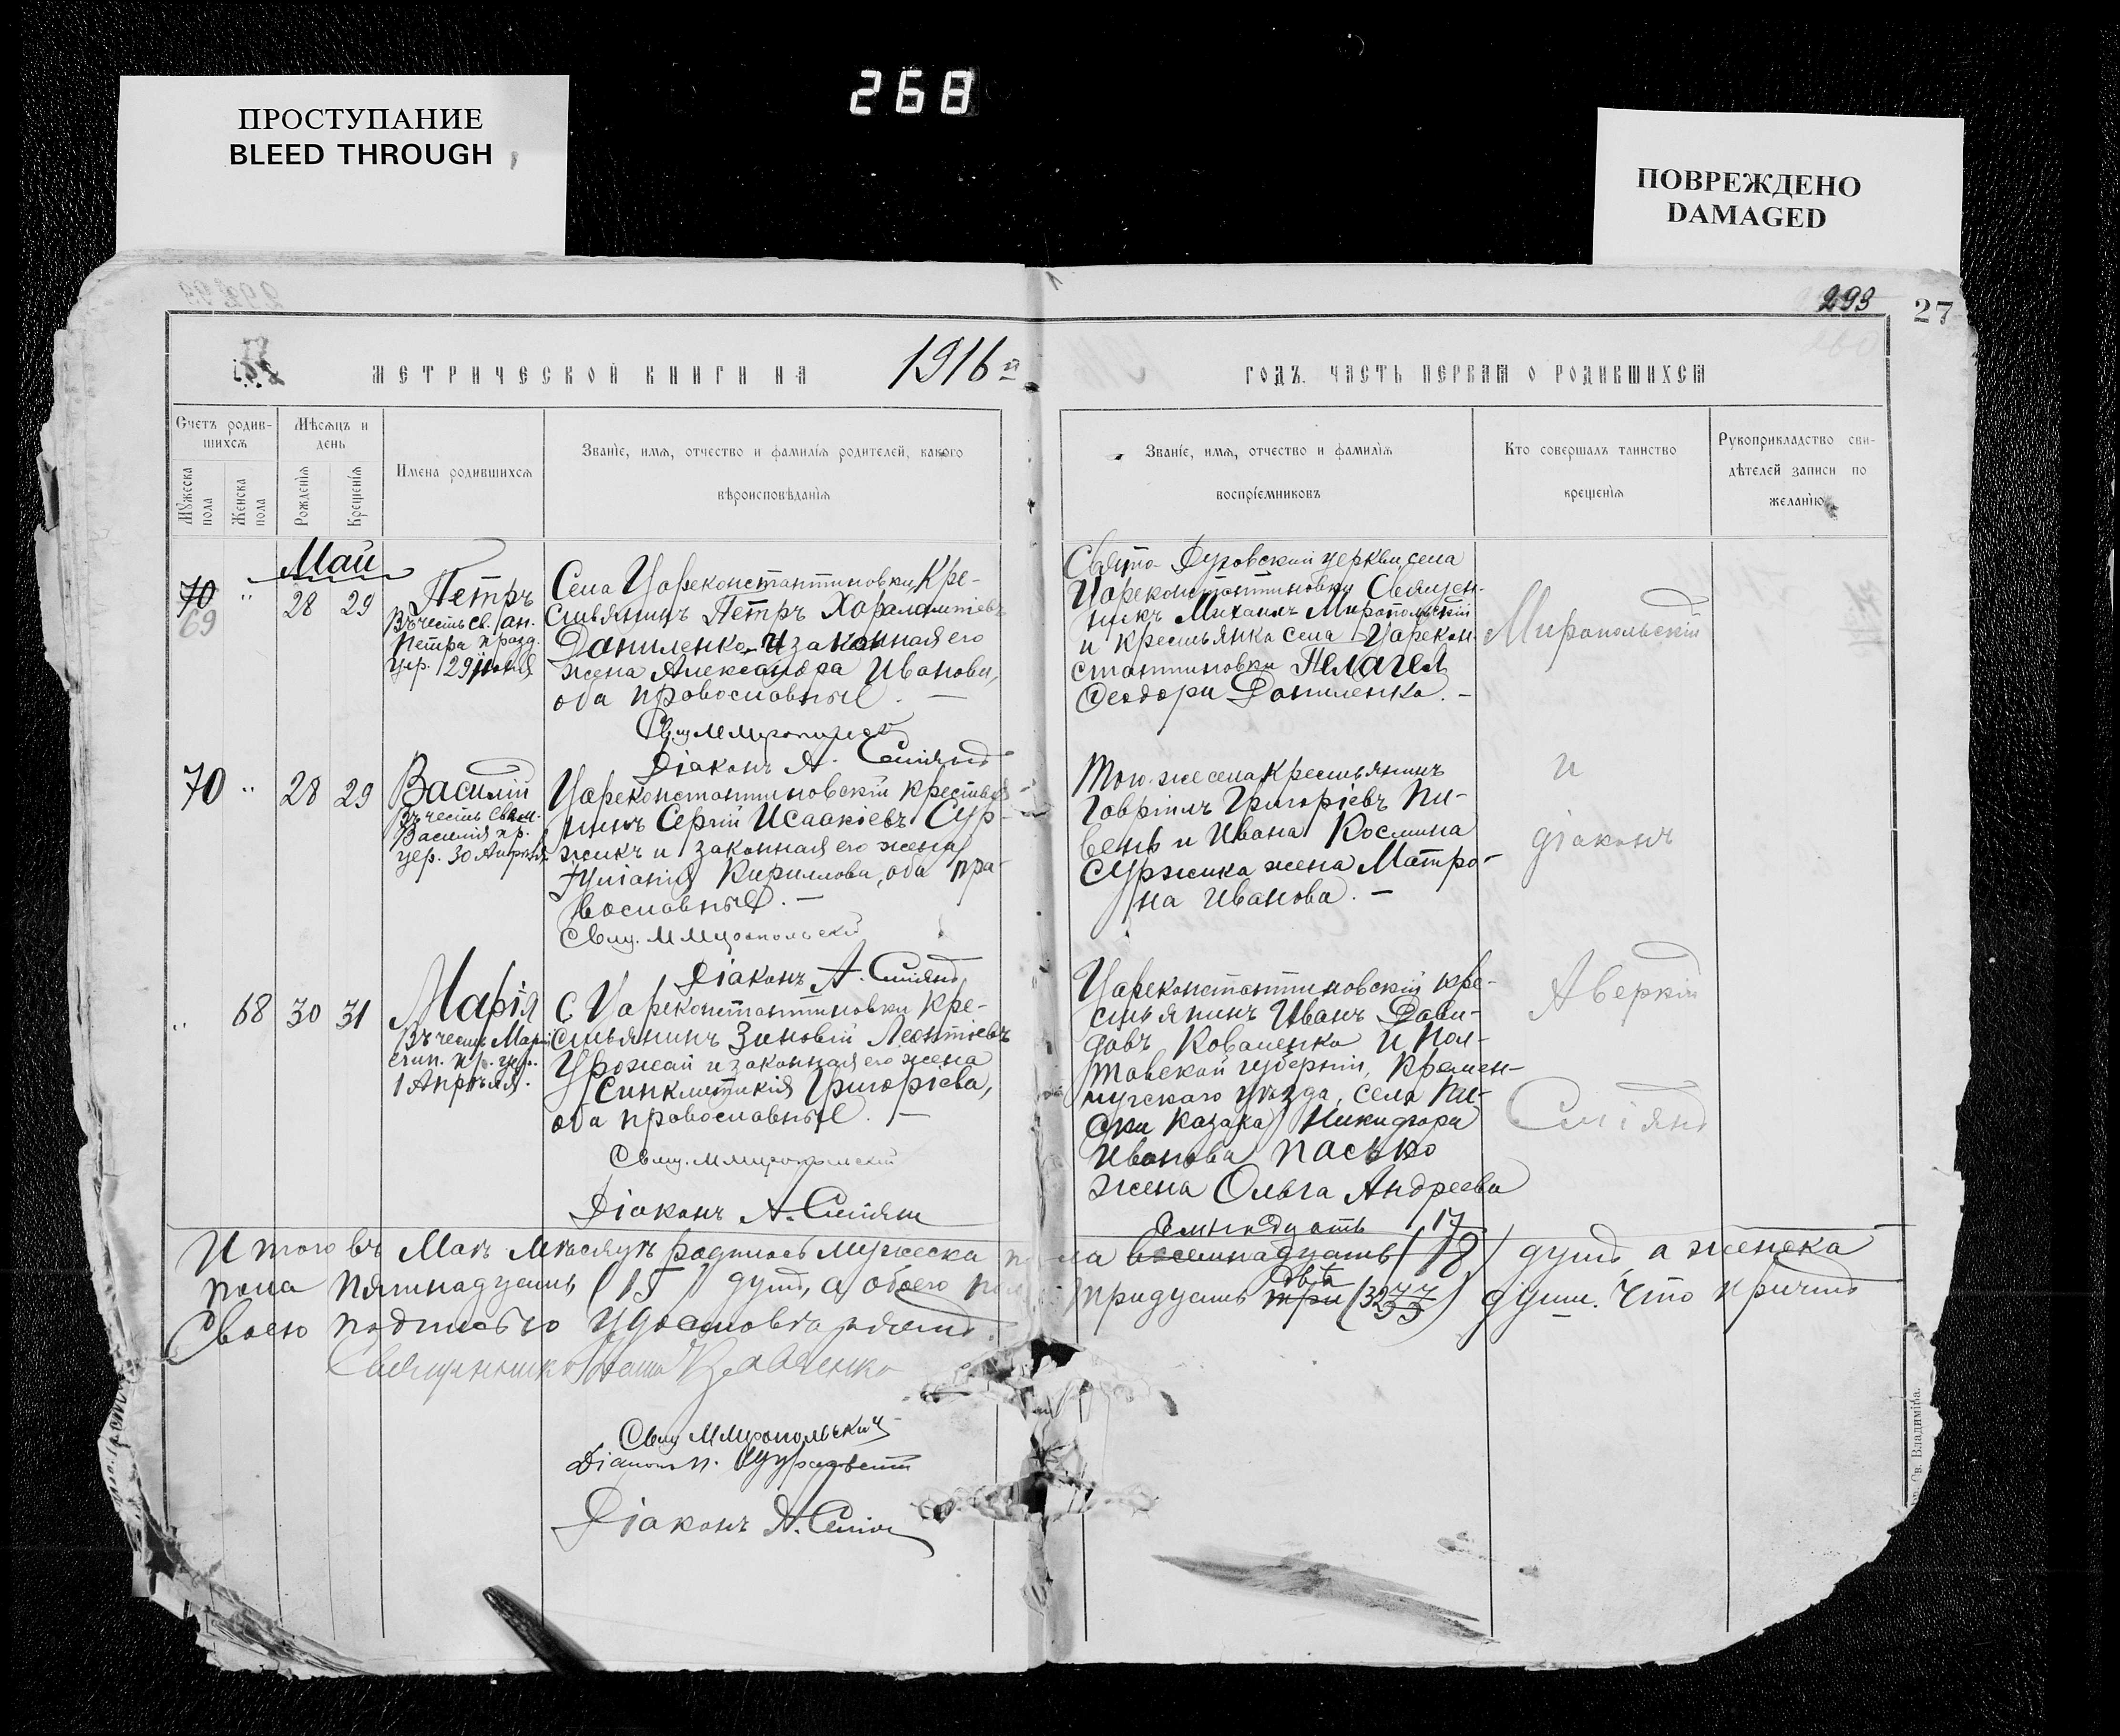 268
ПРОСТУПАНИЕ
BLEED THROUGH
ПОВРЕЖДЕНО
DAMAGED
293
27
МЕТРИЧЕСКОЙ КНИГИ НА 1916 й
ГОДЪ. ЧАСТЬ ПЕРВАЯ О РОДИВШИХСЯ
Счетъ родив-
шихся
Мужеска пола
Женска пола
Мѣсяцъ и
день
Рожденія
Крещенія
Имена родившихся
Званіе, имя, отчество и фамилія родителей, какого
вѣроисповѣданія
Званіе, имя, отчество и фамилія
воспріемниковъ
Кто совершалъ таинство
крещенія
Рукоприкладство сви-
дѣтелей записи по
желанію
Май
70
69
28 29
Петръ
Въ честь св. ап.
Петра празд.
цер. 29 іюня
Села Цареконстантиновки, Кре-
стьянинъ Петръ Харалампіевъ
Даниленко и законная его
жена Александра Иванова,
оба православные. —
Діаконъ А.
Свято-Духовской церкви села
Цареконстантиновки Священ-
никъ Михаилъ Миропольскій
и крестьянка села Царекон-
стантиновки Пелагея
Феодора Даниленко. —
Миропольскій
70 " 28 29
Василій
Въ честь Свящ.
Василія пр.
цер. 30 Апрѣля
Цареконстантиновскій крестья-
нинъ Сергій Исаакіевъ Сур-
жикъ и законная его жена
Іуліанія Кириллова, оба пра-
вославные. —
Свящ. М Миропольскій
Діаконъ А.
Того-же села Крестьянинъ
Гавріилъ Григоріевъ Пи-
вень и Ивана Космина
Суржика жена Матро-
на Иванова. —
и
діаконъ
" 68 30 31
Марія
Въ честь Маріи
егип. пр. цер.
1 Апрѣля.
С Цареконстантиновки Кре-
стьянинъ Зиновій Леонтіевъ
Урожай и законная его жена
Синклитикія Григоріева,
оба православные. —
Свящ. М Миропольскій
Діаконъ А.
Цареконстантиновскій кре-
стьянинъ Иванъ Дави-
довъ Коваленко и Пол-
тавской губерніи, Кремен-
чугскаго уѣзда, села
казака Никифора
Иванова Пасько
жена Ольга Андреева
Аверкій
семнадцать 17
Итого въ Маѣ мѣсяцѣ родилось мужеска пола восемнадцать (18) душъ, а женска
двѣ
пола пятнадцать (15) душъ, а обоего пола тридцать три (32 33) души. Что причтъ
Своею подписью удостовѣряетъ.
Священникъ Кравченко
Свящ М Миропольскій
Діаконъ
Діаконъ А.
Св. Владиміра.